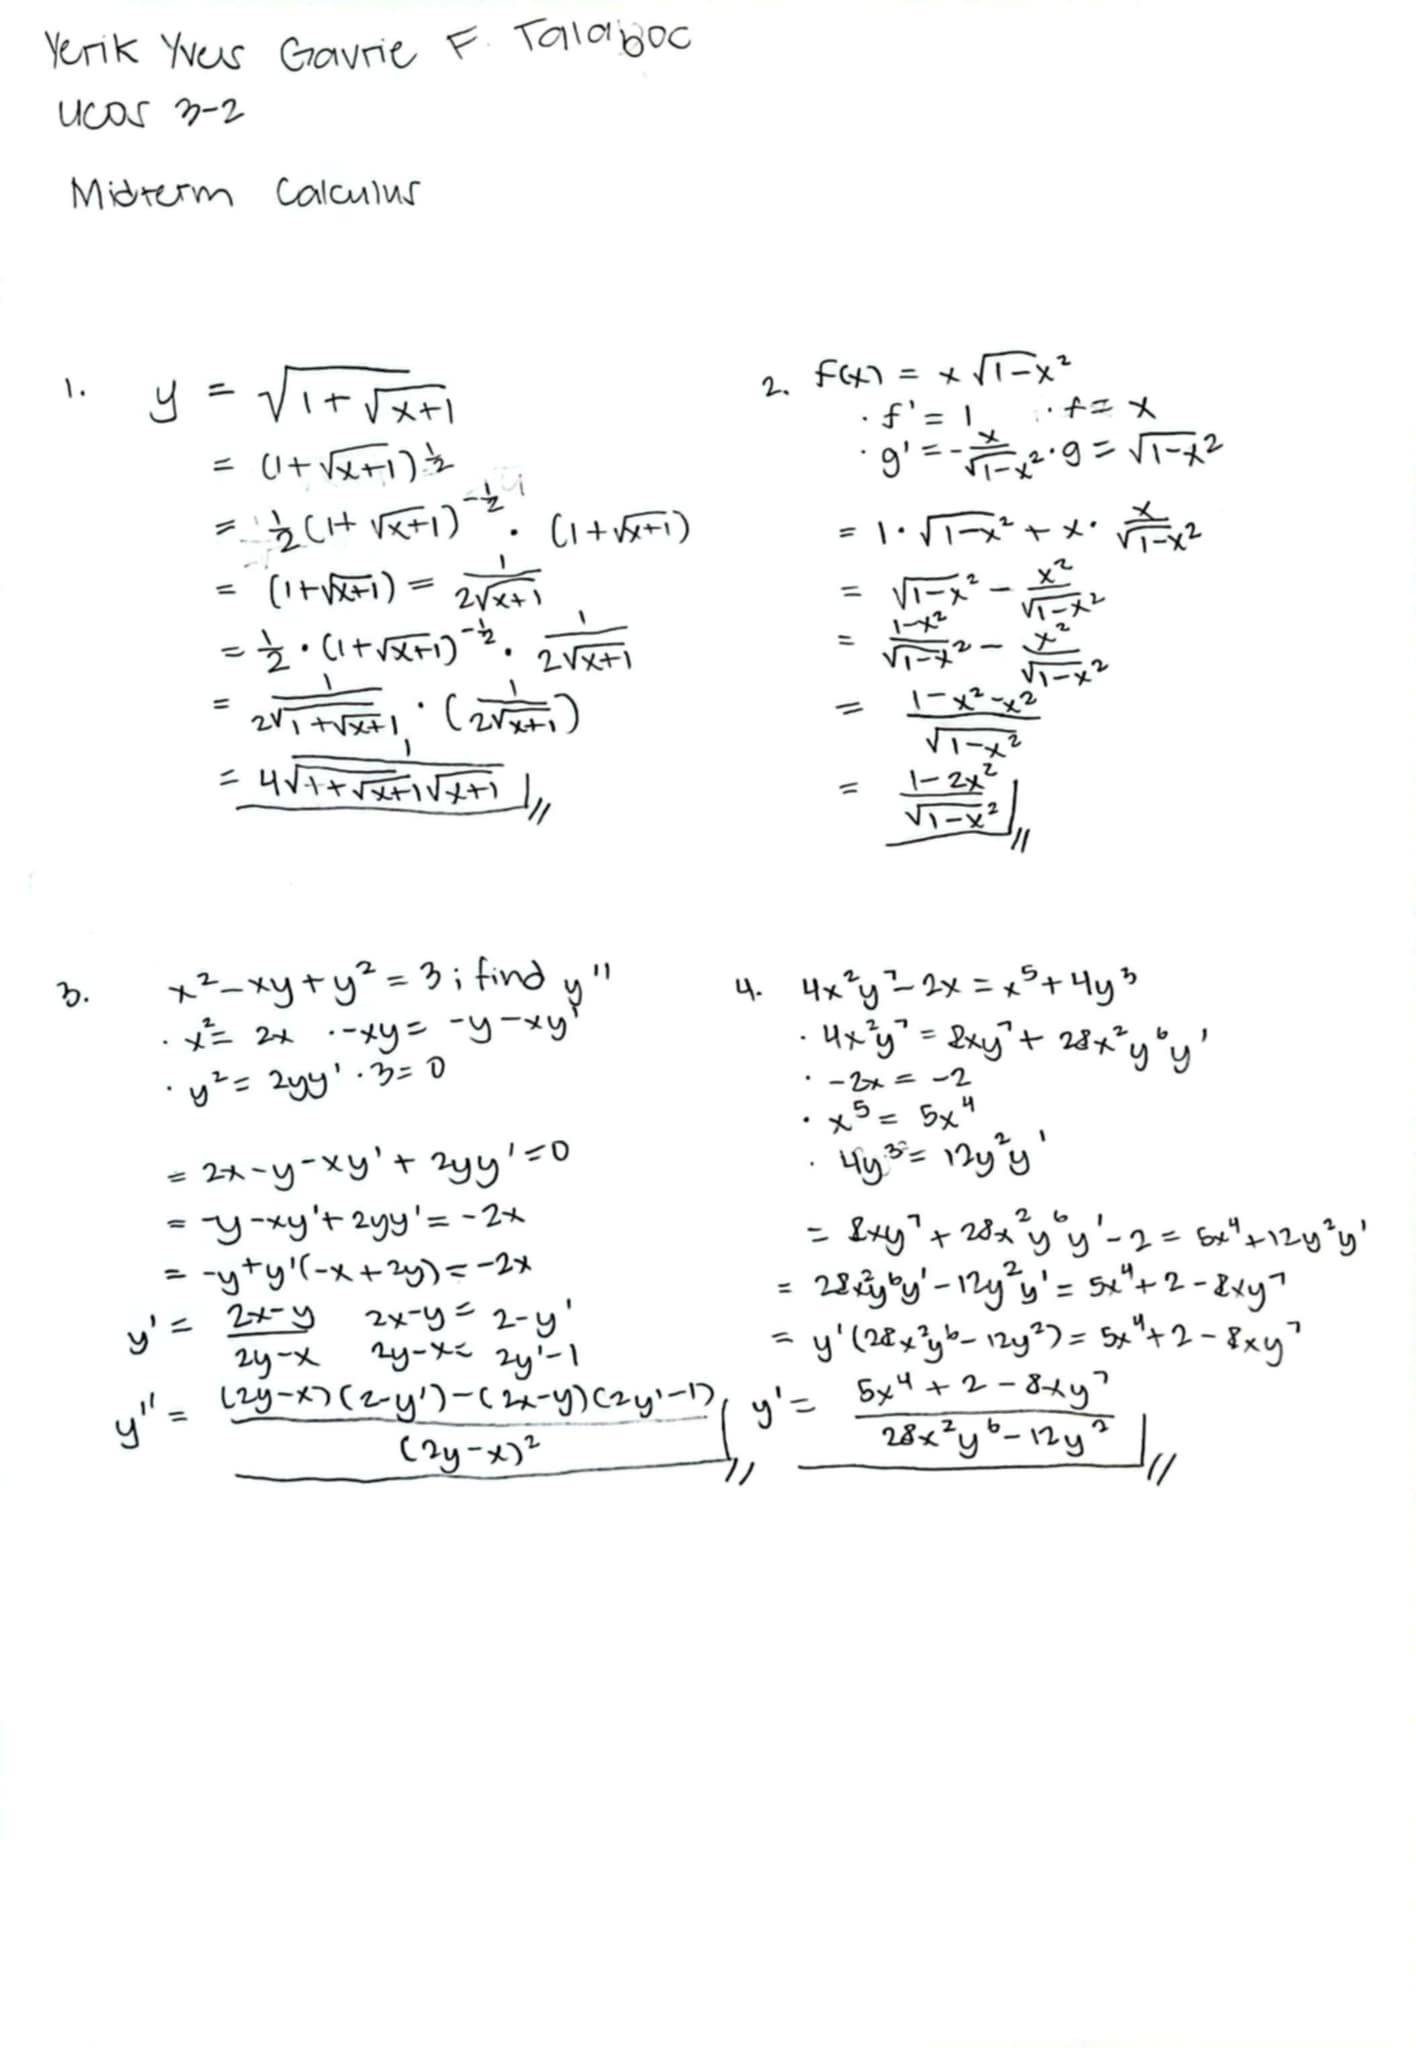 Yerik Yves Gavrie F. Talaboc
UCOS 3-2
Midterm Calculus
1. y = √(1+√(x+1))
= (1+√(x+1))^(1/2)
= 1/2 (1+√(x+1))^(-1/2) · (1+√(x+1))
= (1+√(x+1)) = 1/(2√(x+1))
= 1/2 · (1+√(x+1))^(-1/2) · 1/(2√(x+1))
= 1/(2√(1+√(x+1))) · (1/(2√(x+1)))
= 1/(4√(1+√(x+1))√(x+1))
2. f(x) = x√(1-x²)
· f' = 1 · f = x
· g' = -x/√(1-x²) · g = √(1-x²)
= 1·√(1-x²) + x · x/√(1-x²)
= √(1-x²) - x²/√(1-x²)
= (1-x²)/√(1-x²) - x²/√(1-x²)
= (1-x²-x²)/√(1-x²)
= (1-2x²)/√(1-x²)
3. x²-xy+y²=3; find y''
· x² = 2x · -xy = -y-xy'
· y² = 2yy' · 3=0
= 2x-y-xy'+2yy'=0
= -y-xy'+2yy'=-2x
= -y+y'(-x+2y)=-2x
y' = (2x-y)/(2y-x) 2x-y = 2-y'
2y-x = 2y'-1
y'' = ((2y-x)(2-y')-(2x-y)(2y'-1))/(2y-x)²
4. 4x²y⁷-2x = x⁵+4y³
· 4x²y⁷ = 8xy⁷+28x²y⁶y'
· -2x = -2
· x⁵ = 5x⁴
· 4y³ = 12y²y'
= 8xy⁷+28x²y⁶y'-2 = 5x⁴+12y²y'
= 28x²y⁶y'-12y²y' = 5x⁴+2-8xy⁷
= y'(28x²y⁶-12y²) = 5x⁴+2-8xy⁷
y' = (5x⁴+2-8xy⁷)/(28x²y⁶-12y²)